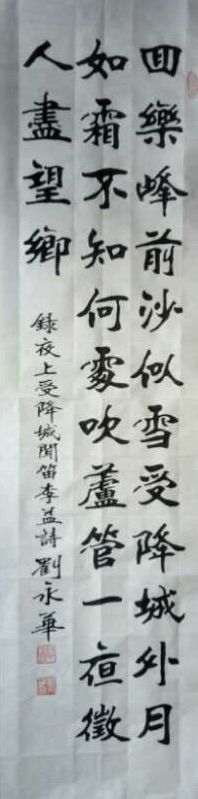 回樂峰前沙似雪受降城外月
如霜不知何處吹蘆管一夜徵
人盡望鄉
錄夜上受降城聞笛李益詩劉永華